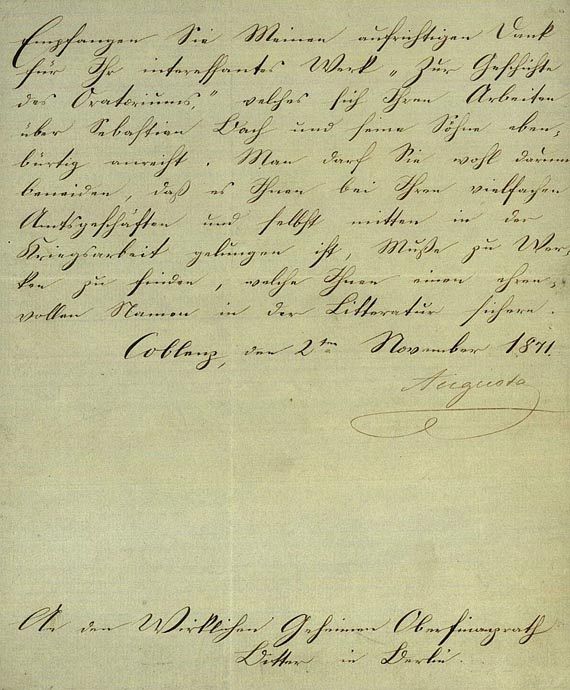 Empfangen Sie Meinen aufrichtigen Dank
für Ihr interessantes Werk „Zur Geschichte
des Oratoriums,“ welches sich Ihren Arbeiten
über Sebastian Bach und seine Söhne eben-
bürtig anreiht. Man darf Sie wohl darum
beneiden, daß es Ihnen bei Ihren vielfachen
Amtsgeschäften und selbst mitten in der
Kriegsarbeit gelungen ist, Muße zu Wer-
ken zu finden, welche Ihnen einen ehren-
vollen Namen in der Litteratur sichern.
Coblenz, den 2ten November 1871.
Augusta
An den Wirklichen Geheimen Oberfinanzrath
Bitter in Berlin.